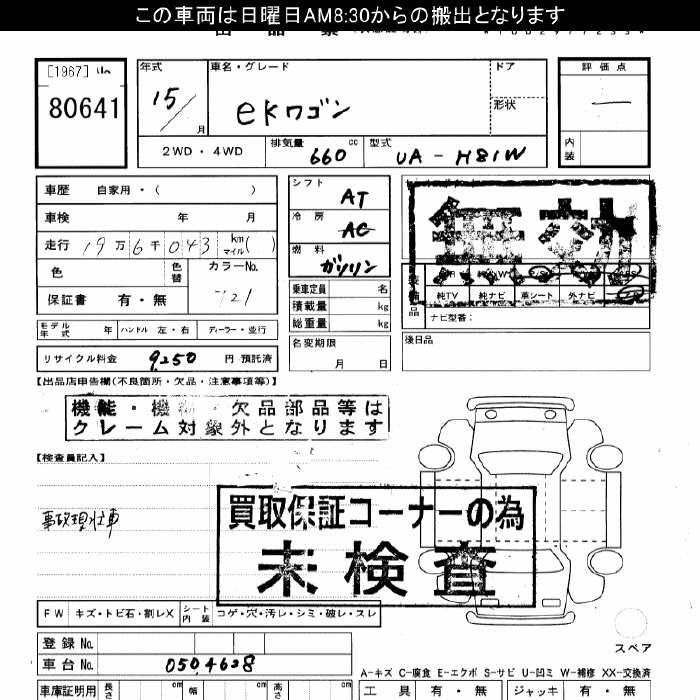 この車両は日曜日AM8:30からの搬出となります
[1967] 山
80641
年式
15/
月
車名・グレード
ekワゴン
ドア
形状
評価点
内装
2WD・4WD
排気量
660 cc
型式
UA-H81W
車歴 自家用・( )
車検 年 月
走行 19万6千043 km マイル( )
色
色替
カラーNo.
721
保証書 有・無
シフト
AT
冷房
AC
燃料
ガソリン
乗車定員 名
積載量 kg
総重量 kg
名変期限
月 日
無効
純TV 純ナビ 革シート 外ナビ
ナビ型番:
後日品
モデル年式 年 ハンドル 左・右 ディーラー・並行
リサイクル料金 9,250 円 預託済
【出品店申告欄(不良箇所・欠品・注意事項等)】
機能・機 ・欠品部品等は
クレーム対象外となります
【検査員記入】
事故現状車
買取保証コーナーの為
未検査
FW キズ・トビ石・割レX シート内装 コゲ・穴・汚レ・シミ・破レ・スレ
登録No.
車台No. 0504628
スペア
A-キズ C-腐食 E-エクボ S-サビ U-凹ミ W-補修 XX-交換済
車庫証明用 長さ cm 幅 cm 高さ cm
工具 有・無 ジャッキ 有・無